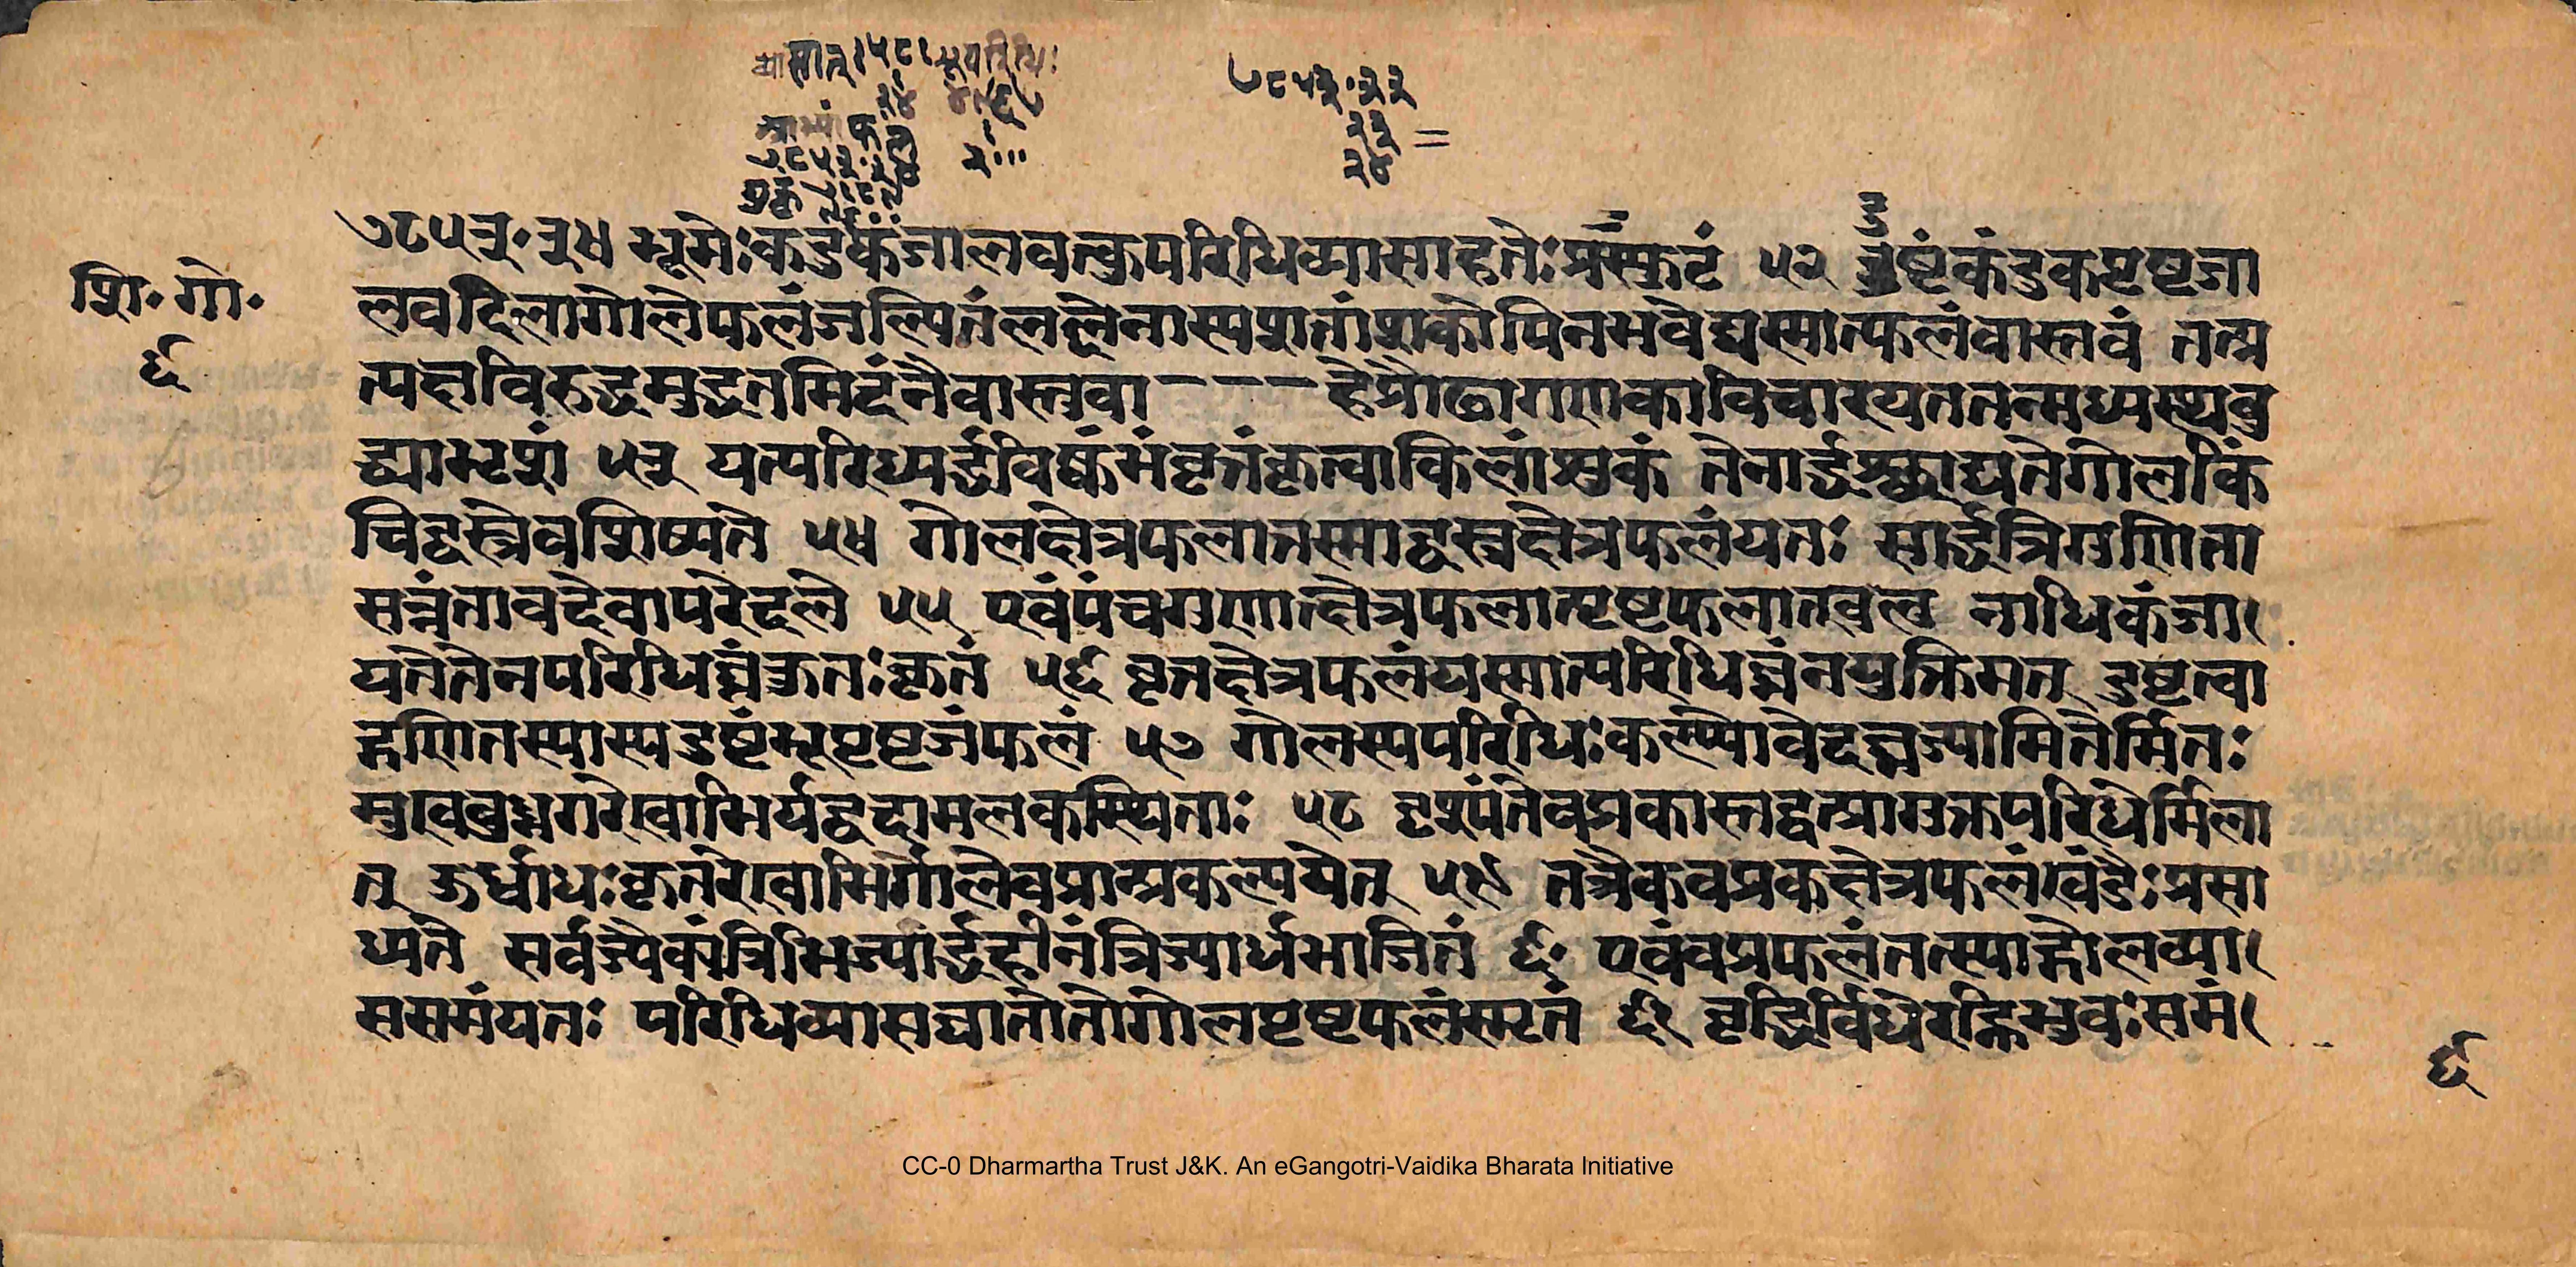 ७८५३॰३४ भूमेःकंडुकजालवत्कुपरिधिव्यासाहतेःप्रस्फुटं ५२ दुष्टंकंडुकपृष्टजा
शि॰ गो॰
लवदिलागोलेफलंजल्पितंलल्लेनास्यशतांशकोपिनभवेद्यस्मात्फलंवास्तवं तत्प्र
६
त्यक्षविरुद्धमुद्धतमिदंनैवास्तुवा - - - हेप्रौढागणकाविचारयततन्मध्यस्थबु
द्ध्याभृशं ५३ यत्परिध्यर्द्धविष्कंभंवृत्तंकृत्वाकिलांशुकं तेनार्द्धश्छाद्यतेगोलकिं
चिद्वस्त्रेवशिष्यते ५४ गोलक्षेत्रफलात्तस्माद्वस्त्रक्षेत्रफलंयतः सार्द्धत्रिगुणिता
सन्नंतावदेवापरेदले ५५ एवंपंचगुणात्क्षेत्रफलात्पृष्टफलातखलु नाधिकंजा
यतेतेनपरिधिघ्नंकुतःकृतं ५६ वृत्तक्षेत्रफलंयस्मात्परिधिघ्नंनयुक्तिमत् दुष्टत्वा
द्गणितस्यास्यदुष्टंभूपृष्टजंफलं ५७ गोलस्यपरिधिःकल्प्योवेदघ्नज्यामितेर्मितः
मुखबुध्नगरेखाभिर्यद्वदामलकस्थिताः ५८ दृश्यंतेवप्रकास्तद्वत्प्रागुक्तपरिधेर्मिला
त् ऊर्ध्वाधःकृतरेखाभिर्गोलेवप्रान्प्रकल्पयेत् ५९ तत्रैकवप्रकक्षेत्रफलंखंडैःप्रसा
ध्यते सर्वज्यैक्यंत्रिभिज्यार्द्धहीनंत्रिज्यार्धभाजितं ६० एवंवप्रफलंतत्स्याद्गोलव्या
ससमंयतः परिधिव्यासघातोतोगोलपृष्टफलंस्मृतं ६१ वृद्धिर्विधेरह्निभुवःसमं
६
CC-0 Dharmartha Trust J&K. An eGangotri-Vaidika Bharata Initiative